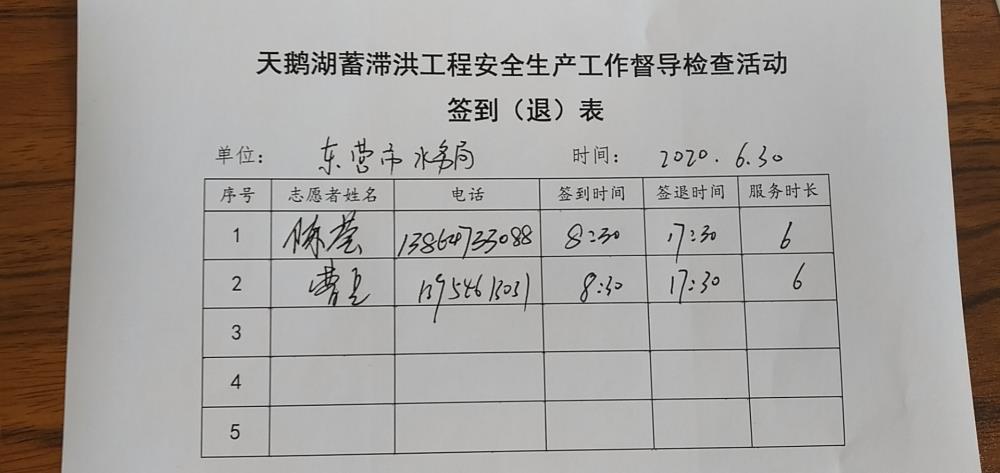 天鹅湖蓄滞洪工程安全生产工作督导检查活动
签到（退）表
单位： 东营市水务局 时间： 2020.6.30
序号 志愿者姓名 电话 签到时间 签退时间 服务时长
1 陈莹 13864733088 8:30 17:30 6
2 曹 8:30 17:30 6
3
4
5